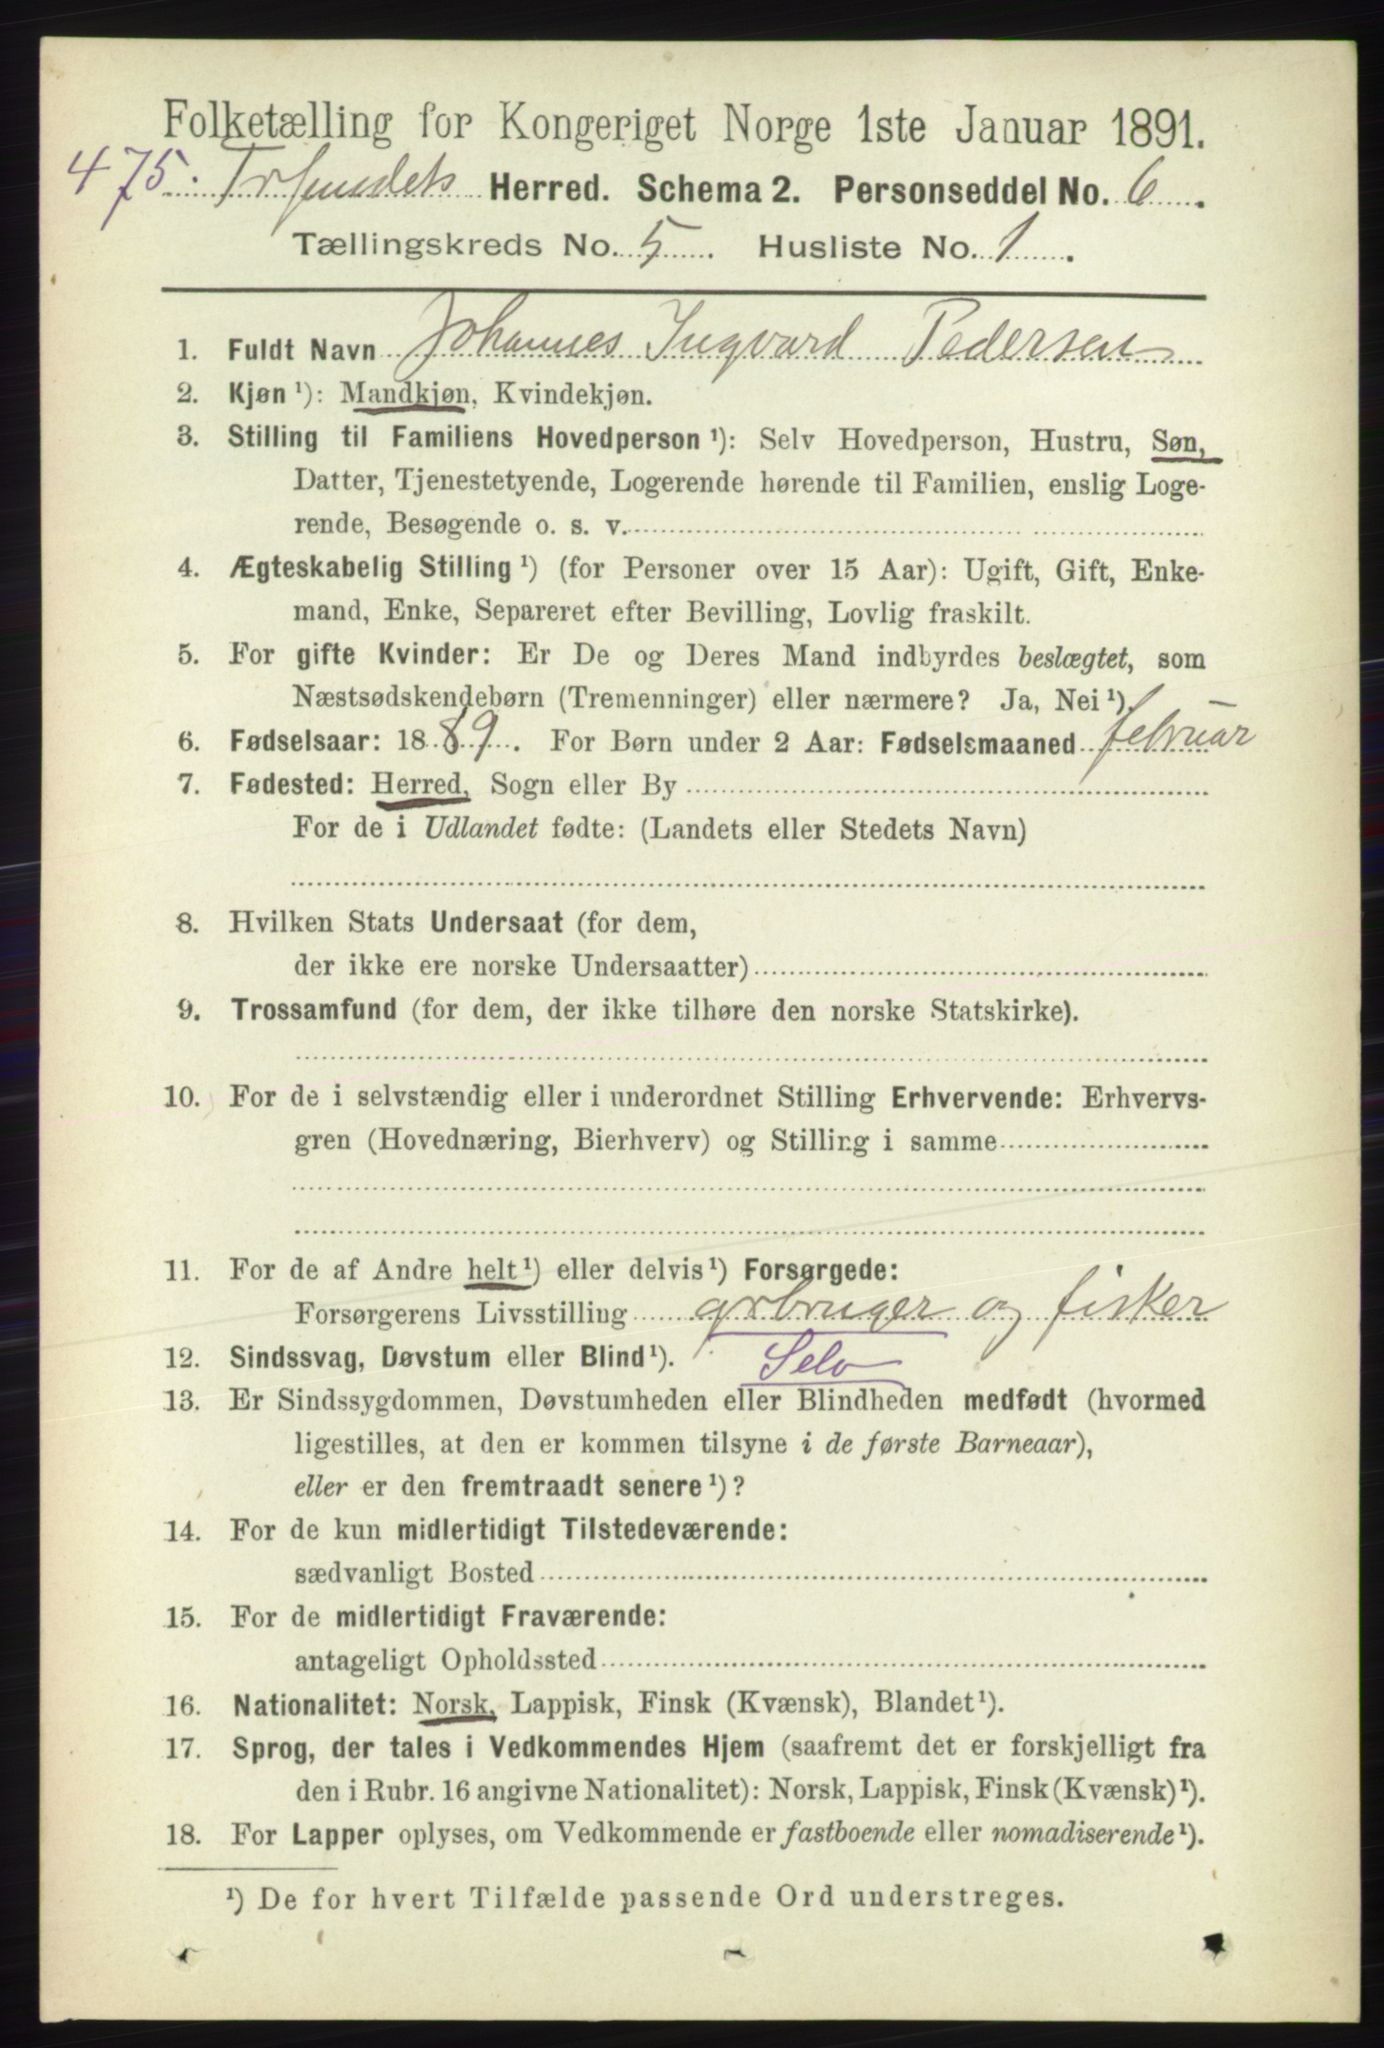 Folketælling for Kongeriget Norge 1ste Januar 1891.
475. Tromsøsundets Herred. Schema 2. Personseddel No. 6.
Tællingskreds No. 5. Husliste No. 1.
1. Fuldt Navn Johannes Ingvard Pedersen
2. Kjøn ¹): Mandkjøn, Kvindekjøn.
3. Stilling til Familiens Hovedperson ¹): Selv Hovedperson, Hustru, Søn,
Datter, Tjenestetyende, Logerende hørende til Familien, enslig Loge-
rende, Besøgende o. s. v.
4. Ægteskabelig Stilling ¹) (for Personer over 15 Aar): Ugift, Gift, Enke-
mand, Enke, Separeret efter Bevilling, Lovlig fraskilt.
5. For gifte Kvinder: Er De og Deres Mand indbyrdes beslægtet, som
Næstsødskendebørn (Tremenninger) eller nærmere? Ja, Nei ¹).
6. Fødselsaar: 1889. For Børn under 2 Aar: Fødselsmaaned februar
7. Fødested: Herred, Sogn eller By
For de i Udlandet fødte: (Landets eller Stedets Navn)
8. Hvilken Stats Undersaat (for dem,
der ikke ere norske Undersaatter)
9. Trossamfund (for dem, der ikke tilhøre den norske Statskirke).
10. For de i selvstændig eller i underordnet Stilling Erhvervende: Erhvervs-
gren (Hovednæring, Bierhverv) og Stilling i samme
11. For de af Andre helt ¹) eller delvis ¹) Forsørgede:
Forsørgerens Livsstilling grbruger og fisker
12. Sindssvag, Døvstum eller Blind ¹). Selv
13. Er Sindssygdommen, Døvstumheden eller Blindheden medfødt (hvormed
ligestilles, at den er kommen tilsyne i de første Barneaar),
eller er den fremtraadt senere ¹)?
14. For de kun midlertidigt Tilstedeværende:
sædvanligt Bosted
15. For de midlertidigt Fraværende:
antageligt Opholdssted
16. Nationalitet: Norsk, Lappisk, Finsk (Kvænsk), Blandet ¹).
17. Sprog, der tales i Vedkommendes Hjem (saafremt det er forskjelligt fra
den i Rubr. 16 angivne Nationalitet): Norsk, Lappisk, Finsk (Kvænsk) ¹).
18. For Lapper oplyses, om Vedkommende er fastboende eller nomadiserende ¹).
¹) De for hvert Tilfælde passende Ord understreges.